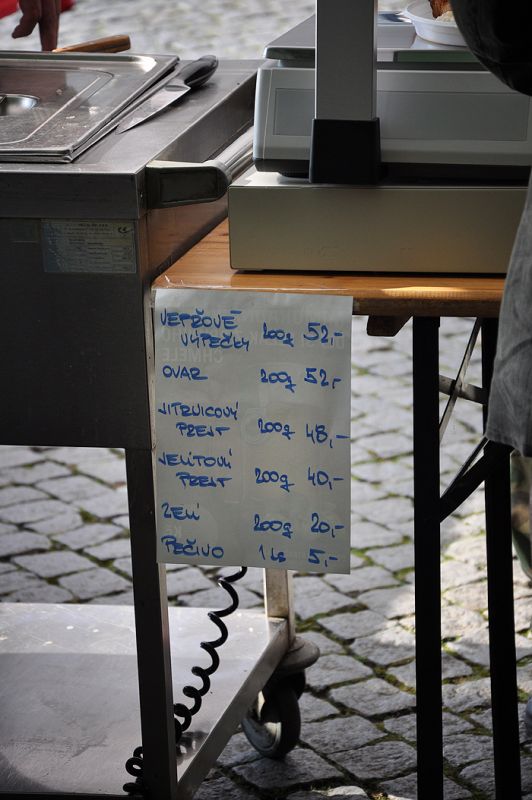 VEPŘOVÉ
VÝPEČKY 200g 52,-
OVAR 200g 52,-
JITRNICOVÝ
PREJT 200g 48,-
JELITOVÝ
PREJT 200g 40,-
ZELÍ 200g 20,-
PEČIVO 1 ks 5,-
CHMELE